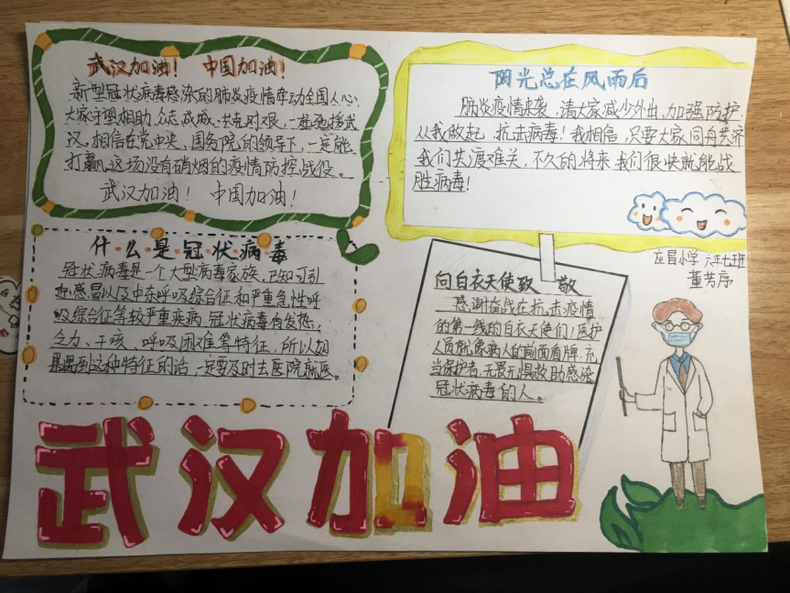 武汉加油! 中国加油!
新型冠状病毒感染的肺炎疫情牵动全国人心,
大家守望相助、众志成城、共克时艰,一起驰援武
汉。相信在党中央、国务院的领导下,一定能
打赢这场没有硝烟的疫情防控战役。
武汉加油! 中国加油!
阳光总在风雨后
肺炎疫情来袭,请大家减少外出,加强防护,
从我做起,抗击病毒!我相信,只要大家同舟共济
我们共渡难关,不久的将来我们很快就能战
胜病毒!
什么是冠状病毒
冠状病毒是一个大型病毒家族,已知可引
起感冒以及中东呼吸综合征和严重急性呼
吸综合征等较严重疾病,冠状病毒有发热、
乏力、干咳、呼吸困难等特征,所以如
果遇到这种特征的话,一定要及时去医院就医。
向白衣天使致敬
感谢奋战在抗击疫情
的第一线的白衣天使们!医护
人员就象病人的前面盾牌,充
当保护者,无畏无惧救助感染
冠状病毒的人。
应昌小学 六年七班
董芳序
武汉加油